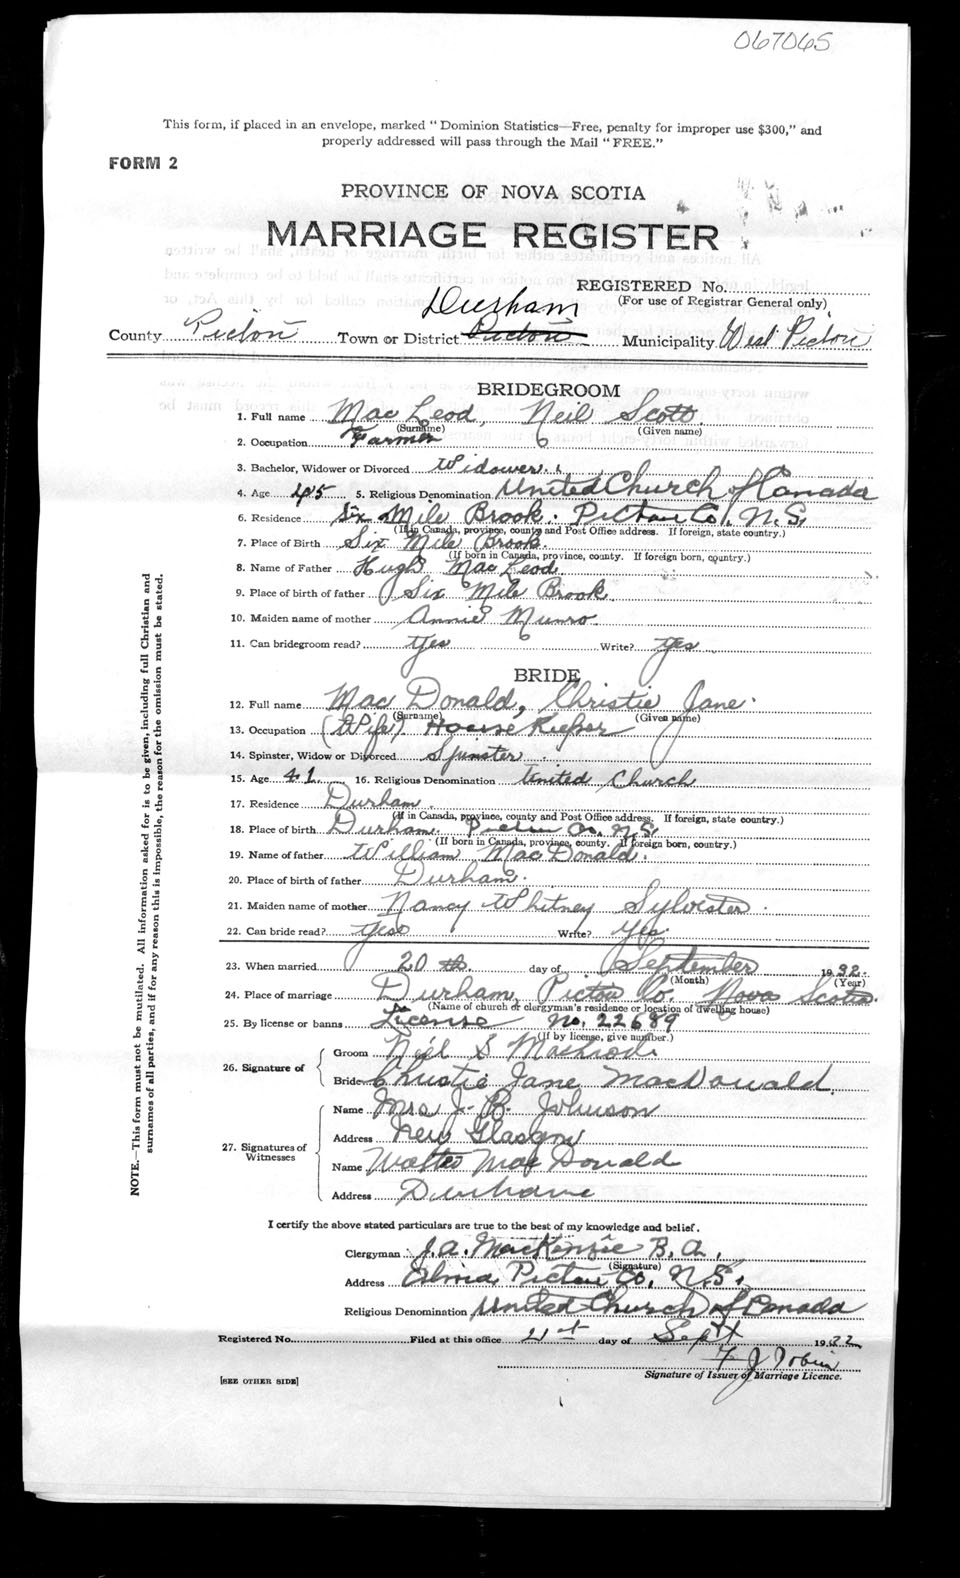 067065
This form, if placed in an envelope, marked "Dominion Statistics—Free, penalty for improper use $300," and
properly addressed will pass through the Mail "FREE."
FORM 2
PROVINCE OF NOVA SCOTIA
MARRIAGE REGISTER
REGISTERED No.
(For use of Registrar General only)
Durham
County Pictou Town or District Pictou Municipality West Pictou
BRIDEGROOM
1. Full name Mac Leod, Neil Scott
(Surname) (Given name)
2. Occupation Farmer
3. Bachelor, Widower or Divorced Widower
4. Age 45 5. Religious Denomination United Church of Canada
6. Residence Six Mile Brook. Pictou Co. N.S.
(If in Canada, province, county and Post Office address. If foreign, state country.)
7. Place of Birth Six Mile Brook
(If born in Canada, province, county. If foreign born, country.)
8. Name of Father Hugh Mac Leod
9. Place of birth of father Six Mile Brook
10. Maiden name of mother Annie Munro
11. Can bridegroom read? Yes Write? Yes
BRIDE
12. Full name Mac Donald, Christie Jane
(Surname) (Given name)
13. Occupation (Wife) House Keeper
14. Spinster, Widow or Divorced Spinster
15. Age 41 16. Religious Denomination United Church
17. Residence Durham
(If in Canada, province, county and Post Office address. If foreign, state country.)
18. Place of birth Durham. Pictou Co. N.S.
(If born in Canada, province, county. If foreign born, country.)
19. Name of father William Mac Donald.
20. Place of birth of father Durham.
21. Maiden name of mother Nancy Whitney Sylvester
22. Can bride read? Yes Write? Yes
23. When married 20 th day of September 1932.
(Month) (Year)
24. Place of marriage Durham, Pictou Co. Nova Scotia.
(Name of church or clergyman's residence or location of dwelling house)
25. By license or banns License No. 22689
(If by license, give number.)
26. Signature of
Groom Neil S MacLeod
Bride Christie Jane MacDonald.
27. Signatures of Witnesses
Name Mrs J. B. Johnson
Address New Glasgow
Name Walter MacDonald
Address Durham
I certify the above stated particulars are true to the best of my knowledge and belief.
Clergyman J.A. MacKenzie B.A.,
(Signature)
Address Alma Pictou Co. N.S.
Religious Denomination United Church of Canada
Registered No. Filed at this office 21st day of Sept 1932
F J Tobin
Signature of Issuer of Marriage Licence.
[SEE OTHER SIDE]
NOTE.—This form must not be mutilated. All information asked for is to be given, including full Christian and
surnames of all parties, and if for any reason this is impossible, the reason for the omission must be stated.